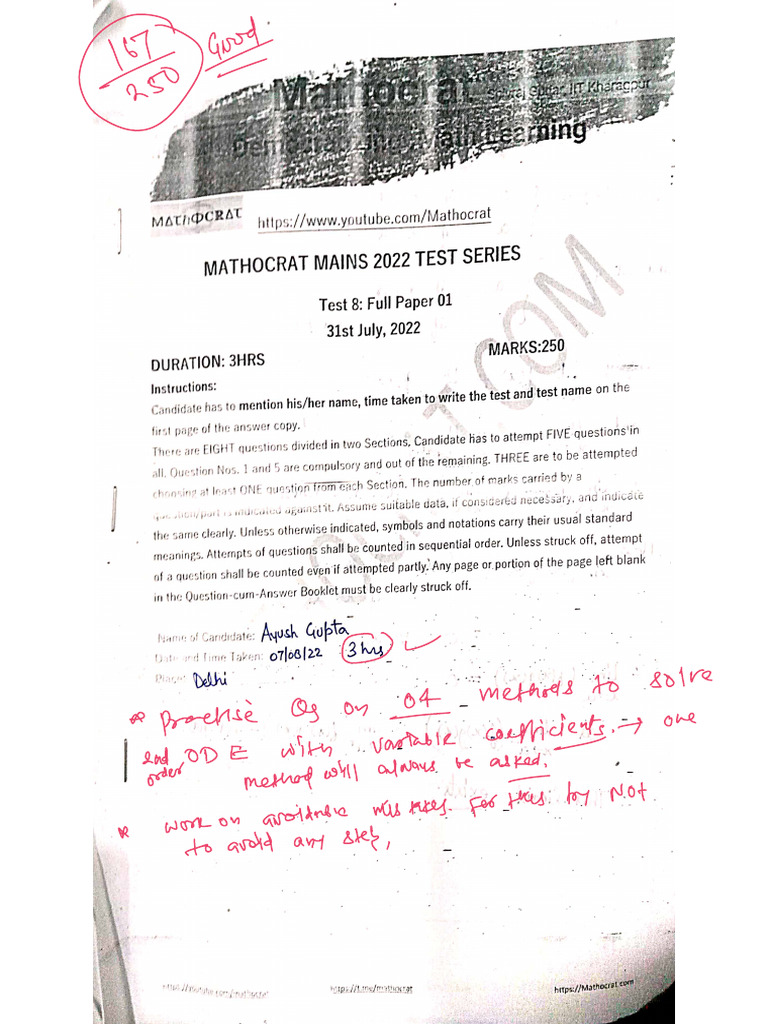 167
250
Good
Mathocrat Suraj Sultar, IIT Kharagpur
Democratizing Math Learning
MΔThΦCRΔT
https://www.youtube.com/Mathocrat
MATHOCRAT MAINS 2022 TEST SERIES
Test 8: Full Paper 01
31st July, 2022
DURATION: 3HRS
MARKS:250
Instructions:
Candidate has to mention his/her name, time taken to write the test and test name on the
first page of the answer copy.
There are EIGHT questions divided in two Sections. Candidate has to attempt FIVE questions in
all. Question Nos. 1 and 5 are compulsory and out of the remaining. THREE are to be attempted
choosing at least ONE question from each Section. The number of marks carried by a
question/part is indicated against it. Assume suitable data, if considered necessary, and indicate
the same clearly. Unless otherwise indicated, symbols and notations carry their usual standard
meanings. Attempts of questions shall be counted in sequential order. Unless struck off, attempt
of a question shall be counted even if attempted partly. Any page or portion of the page left blank
in the Question-cum-Answer Booklet must be clearly struck off.
Name of Candidate: Ayush Gupta
Date and Time Taken: 07/08/22 3 hrs
Place: Delhi
Practise Qs on 04 methods to solve
2nd order ODE with variable coefficients. → one
method will always be asked.
work on avoidable mistakes. For this try NOT
to avoid any step,
https://youtube.com/mathocrat
https://t.me/mathocrat
https://Mathocrat.com